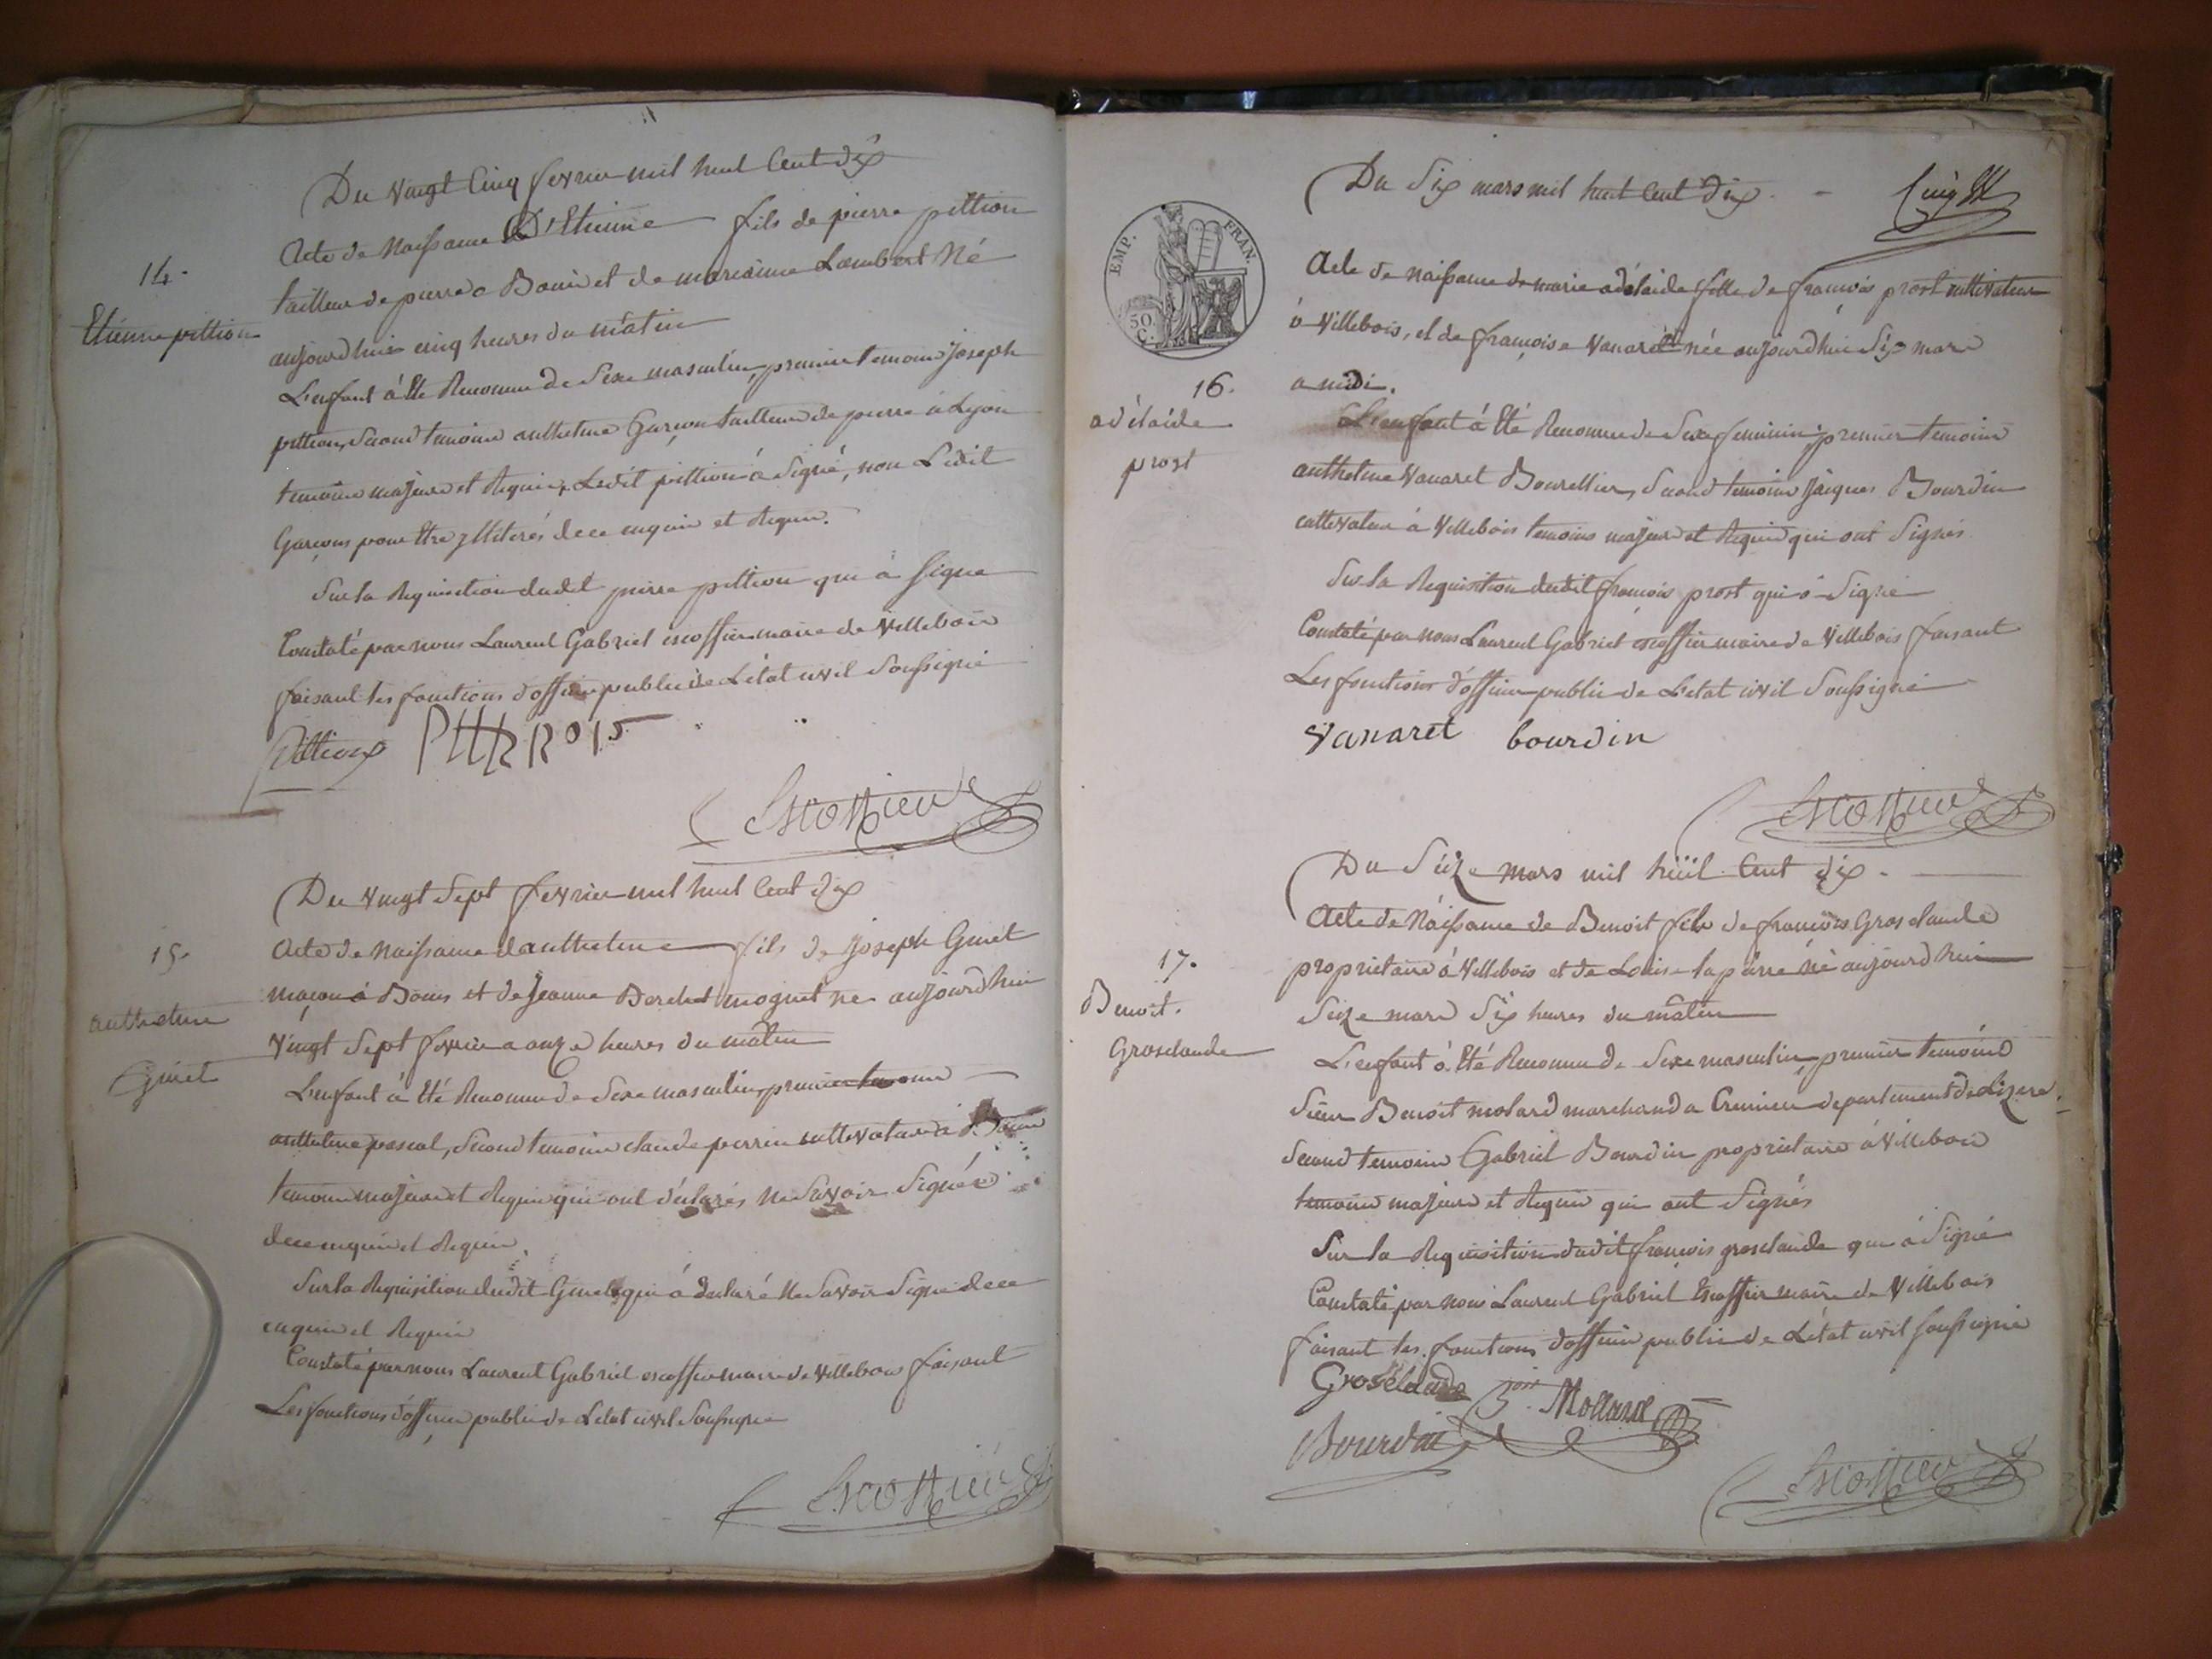 Du vingt Cinq fevrier mil huit Cent dix
14.
Etienne pittion
Acte de Naissance D'Etienne fils de pierre pittion
tailleur de pierre a Bouis et de marianne Lambert Né
aujourdhui cinq heures du matin
L'enfant à Eté Reconnu de Sexe masculin, premier temoin Joseph
pittion, Second temoin anthelme Garçon tailleur de pierre à Lyon
temoins majeurs et Requis, Ledit pittion à Signé, non Ledit
Garçon pour Etre illiterés de ce enquis et Requis.
Sur la Requisition dudit pierre pittion qui à Signe
Constaté par nous Laurent Gabriel escoffier maire de Villebois
faisant les fonctions d'officier public de L'état civil Soussigné
Pittion
Escoffier
Du vingt Sept fevrier mil huit Cent dix
15.
anthelme
Ginet
Acte de Naissance danthelme fils de Joseph Ginet
maçon à Bouis et de Jeanne Berchet moguet né aujourdhui
Vingt Sept fevrier a onze heures du matin
L'enfant à Eté Reconnu de Sexe masculin, premier temoin
anthelme pascal, Second temoin claude perrin cultivateur à Bouis
temoins majeurs et Requis qui ont déclarés ne Savoir Signés
de ce enquis et Requis
Sur la Requisition dudit Ginet qui à declaré Ne Savoir Signe de ce
enquis et Requis
Constaté par nous Laurent Gabriel escoffier maire de Villebois faisant
Les fonctions d'officier public de L'etat civil Soussigne
Escoffier
Du Six mars mil huit Cent Dix.
EMP. FRAN.
50 C.
16.
adélaide
prost
Acte de naissance de marie adélaide fille de françois prost cultivateur
à Villebois, et de françoise Vanaret née aujourdhui Six mars
a midi.
L'enfant à Eté Reconnu de Sexe feminin, premier temoin
anthelme Vanaret Bourellier, Second temoin Jacques Bourdin
cultivateur à Villebois temoins majeurs et Requis qui ont Signés
Sur la Requisition dudit françois prost qui à Signé
Constaté par nous Laurent Gabriel escoffier maire de Villebois faisant
Les fonctions d'officier public de L'etat civil Soussigné
Vanaret bourdin
Escoffier
Du Seize mars mil huit Cent dix.
17.
Benoit.
Grosclaude
Acte de Naissance de Benoit fils de françois Grosclaude
proprietaire à Villebois et de Louise lapierre né aujourdhui
Seize mars Six heures du matin
L'enfant à Eté Reconnu de Sexe masculin, premier temoin
Sieur Benoit molard marchand a Cremieu departement de Lizere.
Second temoin Gabriel Bourdin proprietaire à Villebois
temoins majeurs et Requis qui ont Signés
Sur la Requisition dudit françois grosclaude qui à Signé
Constaté par nous Laurent Gabriel Escoffier maire de Villebois
faisant les fonctions d'officier public de L'état civil soussigné
Grosclaude Mollard
Bourdin
Escoffier